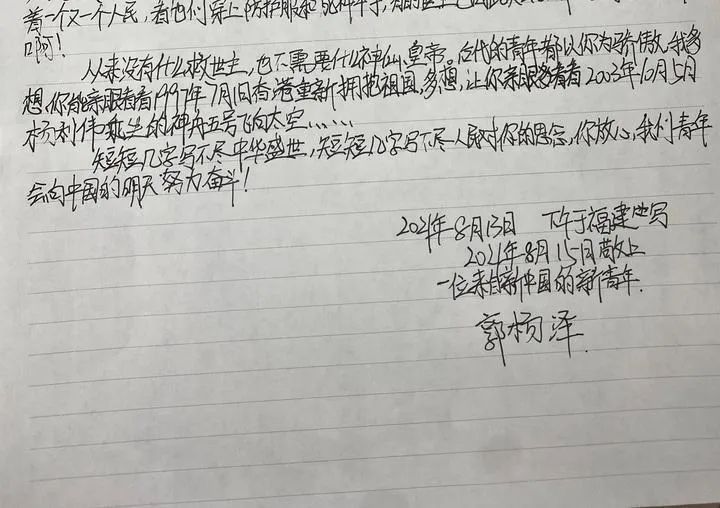 着一个又一个人民,看他们穿上防护服和死神牵手,
啊!
从来没有什么救世主,也不需要什么神仙皇帝。后代的青年都以你为骄傲,我多
想,你能亲眼看看1997年7月1日香港重新拥抱祖国,多想,让你亲眼看看2003年10月15日
杨利伟乘坐的神舟五号飞向太空……
短短几字写不尽中华盛世,短短几字写不尽人民对你的思念,你放心,我们青年
会向中国的明天努力奋斗!
2021年8月13日 下午于福建
2021年8月15日敬上
一位来自新中国的新青年.
郭杨泽